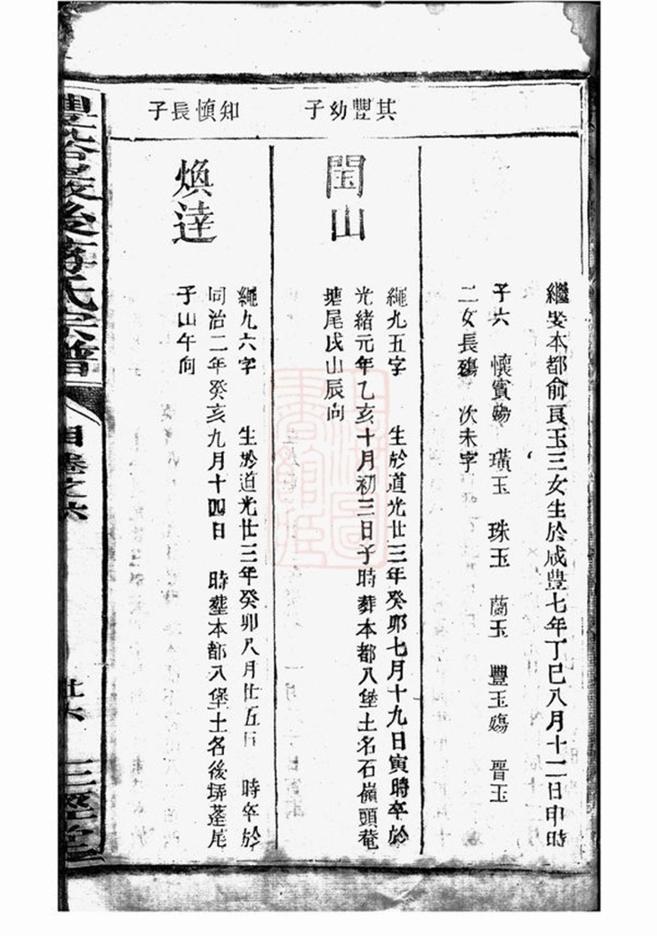 其豐幼子
知慎長子
繼娶本都俞良玉三女生於咸豐七年丁巳八月十二日申時
子六 懷寶殤 璜玉 珠玉 蘭玉 豐玉殤 晋玉
二女長殤 次未字
閏山
繩九五字 生於道光廿三年癸卯七月十九日寅時卒於
光緒元年乙亥十月初三日子時葬本都八堡土名石嶺頭菴
塘尾戌山辰向
煥達
繩九六字 生於道光廿三年癸卯八月廿五日 時卒於
同治二年癸亥九月十四日 時塟本都八堡土名後塀蓬尾
子山午向
後蔣氏宗譜
卷之六
三徑堂